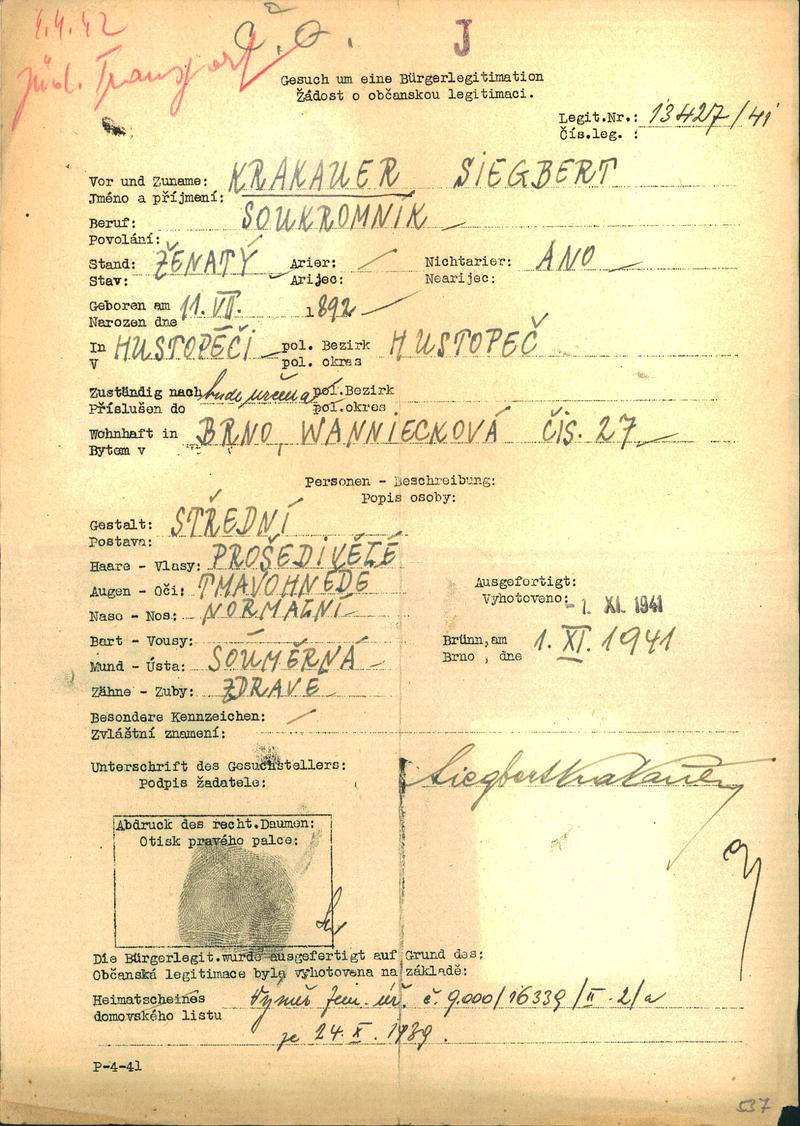 4.4.42
Č. O.
J
jüd. Transport
Gesuch um eine Bürgerlegitimation
Žádost o občanskou legitimaci.
Legit.Nr.: 13427/41
Čís.leg. :
Vor und Zuname: KRAKAUER SIEGBERT
Jméno a příjmení:
Beruf: SOUKROMNÍK
Povolání:
Stand: ŽENATÝ Arier: Nichtarier: ANO
Stav: Arijec: Nearijec:
Geboren am 11. VII. 1892
Narozen dne
In HUSTOPEČI pol. Bezirk HUSTOPEČ
V pol. okres
Zuständig nach bude určena pol.Bezirk
Příslušen do pol.okres
Wohnhaft in BRNO, WANNIECKOVÁ ČÍS. 27
Bytem v
Personen - Beschreibung:
Popis osoby:
Gestalt: STŘEDNÍ
Postava:
Haare - Vlasy: PROŠEDIVĚLÉ
Augen - Oči: TMAVOHNĚDÉ
Ausgefertigt:
Vyhotoveno: - 1. XI. 1941
Nase - Nos: NORMÁLNÍ
Bart - Vousy: -
Brünn,am 1. XI. 1941
Brno , dne
Mund - Ústa: SOUMĚRNÁ
Zähne - Zuby: ZDRAVÉ
Besondere Kennzeichen:
Zvláštní znamení:
Unterschrift des Gesuchstellers: Siegbert Krakauer
Podpis žadatele:
Abdruck des recht.Daumen:
Otisk pravého palce:
Die Bürgerlegit.wurde ausgefertigt auf Grund des:
Občanská legitimace byla vyhotovena na základě:
Heimatscheines Výměr zem. úř. č. 9.000/16339/II-2/a
domovského listu
ze 24. X. 1939.
P-4-41
537